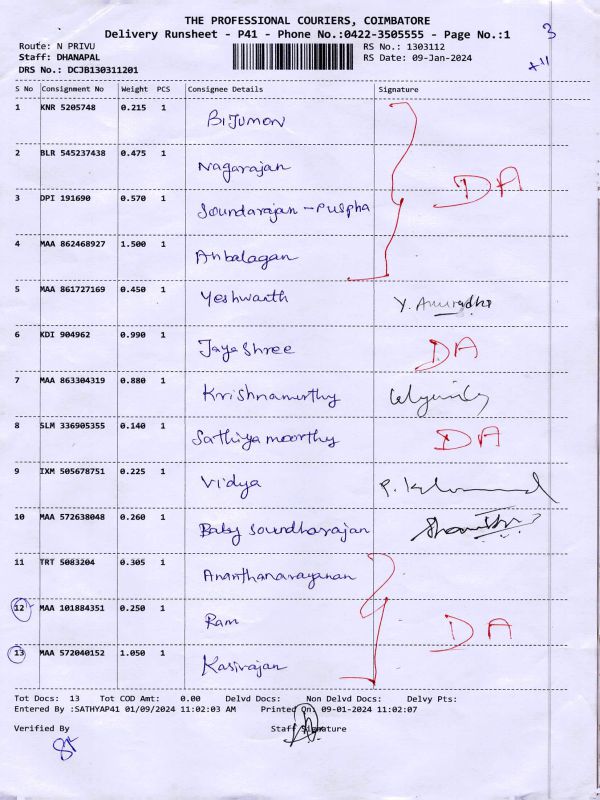 THE PROFESSIONAL COURIERS, COIMBATORE
Delivery Runsheet - P41 - Phone No.:0422-3505555 - Page No.:1
3
Route: N PRIVU
RS No.: 1303112
Staff: DHANAPAL
RS Date: 09-Jan-2024
DRS No.: DCJB130311201
S No Consignment No Weight PCS Consignee Details Signature
1 KNR 5205748 0.215 1 Bijumon
2 BLR 545237438 0.475 1 Nagarajan
DA
3 DPI 191690 0.570 1 Soundarajan - Puspha
4 MAA 862468927 1.500 1 Anbalagan
5 MAA 861727169 0.450 1 Yeshwanth Y. Anuradha
6 KDI 904962 0.990 1 Jayashree DA
7 MAA 863304319 0.880 1 Krishnamurthy
8 SLM 336905355 0.140 1 Sathiya moorthy DA
9 IXM 505678751 0.225 1 Vidya
10 MAA 572638048 0.260 1 Baby Soundharajan
11 TRT 5083204 0.305 1 Ananthanarayanan
12 MAA 101884351 0.250 1 Ram DA
13 MAA 572040152 1.050 1 Kasirajan
Tot Docs: 13 Tot COD Amt: 0.00 Delvd Docs: Non Delvd Docs: Delvy Pts:
Entered By :SATHYAP41 01/09/2024 11:02:03 AM Printed On: 09-01-2024 11:02:07
Verified By Staff Signature